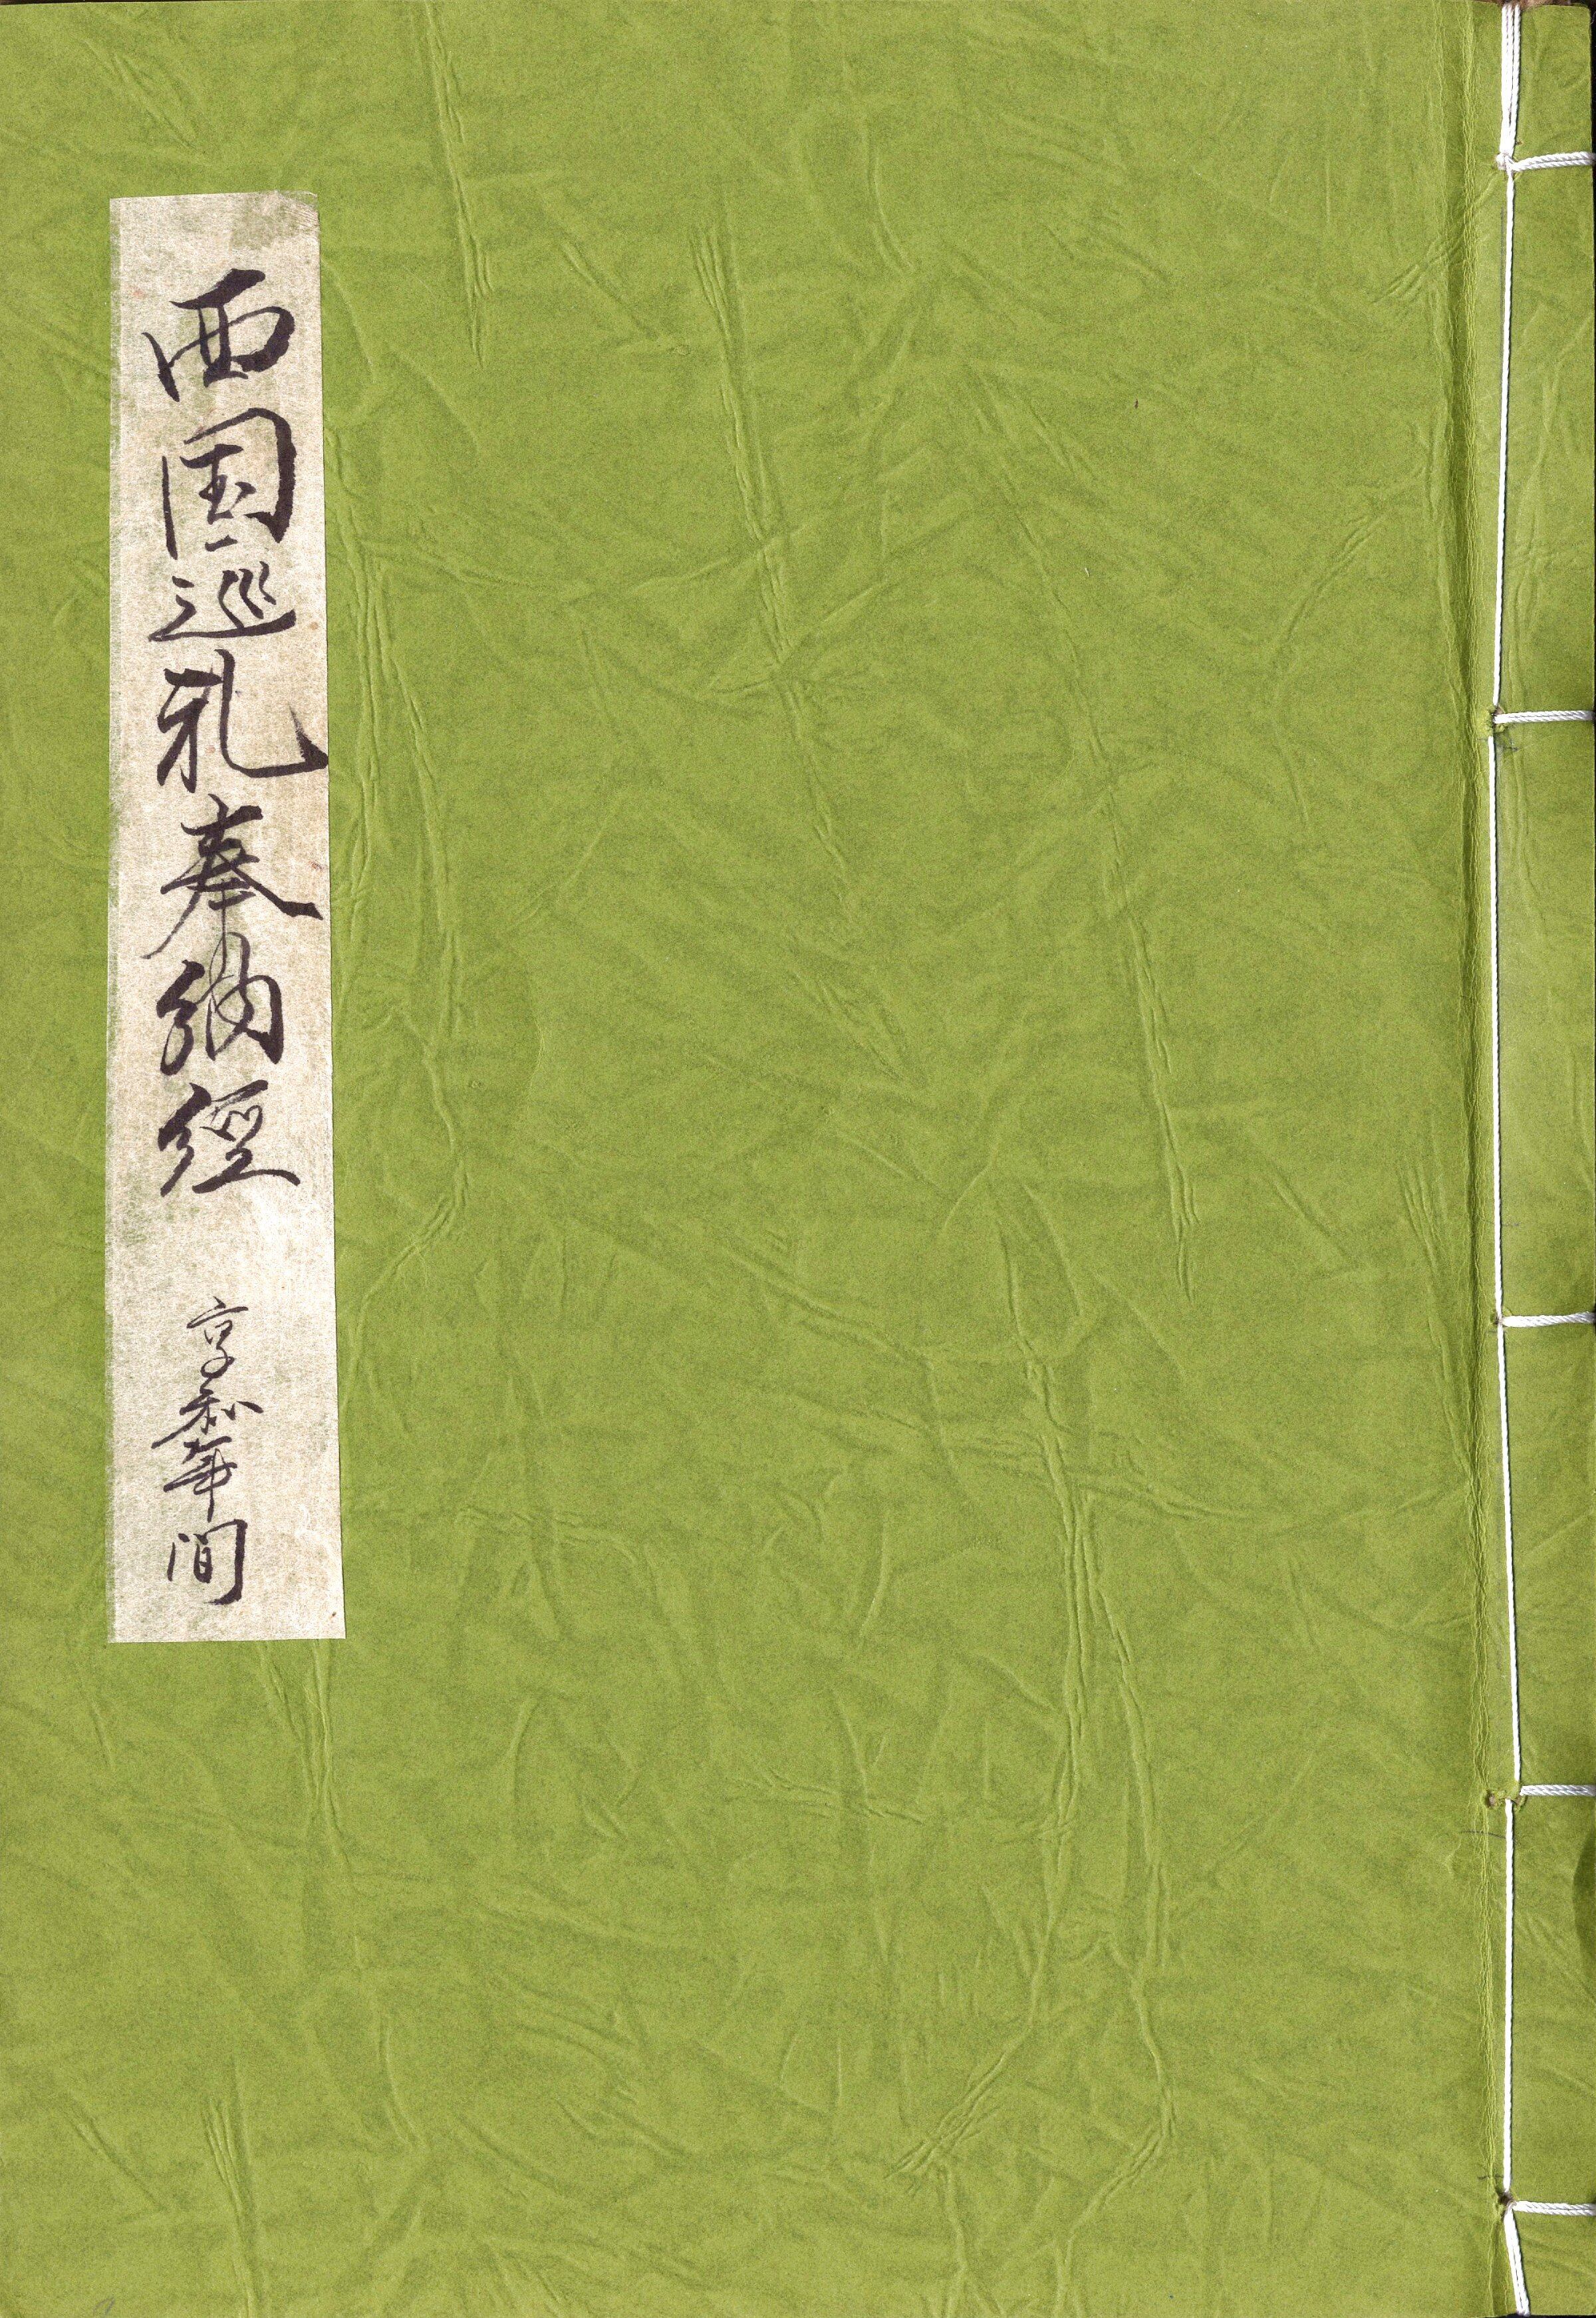 西国巡礼奉納經 享和年間